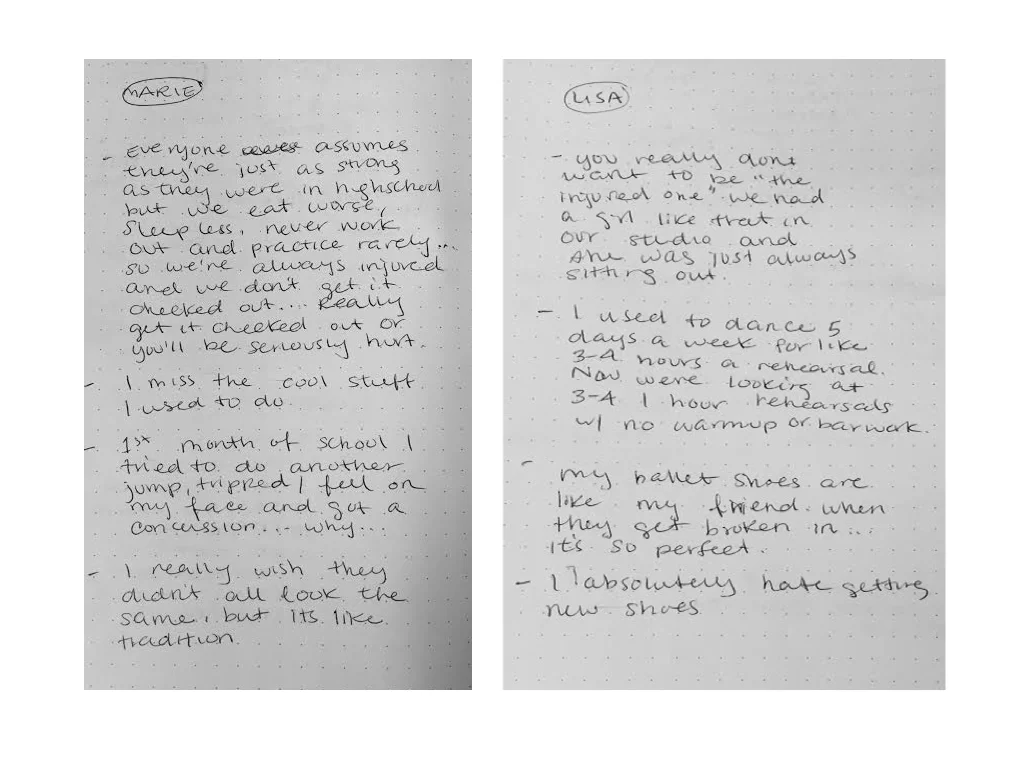 MARIE
- Everyone assumes
they're just as strong
as they were in highschool
but we eat worse,
sleep less, never work
out and practice rarely...
so we're always injured
and we don't get it
checked out.... Really
get it checked out or
you'll be seriously hurt.
- I miss the cool stuff
I used to do
- 1st month of school I
tried to do another
jump, tripped I fell on
my face and got a
concussion.... why...
- I really wish they
didn't all look the
same, but its like
tradition.
LISA
- you really dont
want to be "the
injured one" we had
a girl like that in
our studio and
she was just always
sitting out.
- I used to dance 5
days a week for like
3-4 hours a rehearsal.
Now were looking at
3-4 1 hour rehearsals
w/ no warmup or barwork.
- my ballet shoes are
like my friend when
they get broken in...
it's so perfect.
- I absolutely hate getting
new shoes